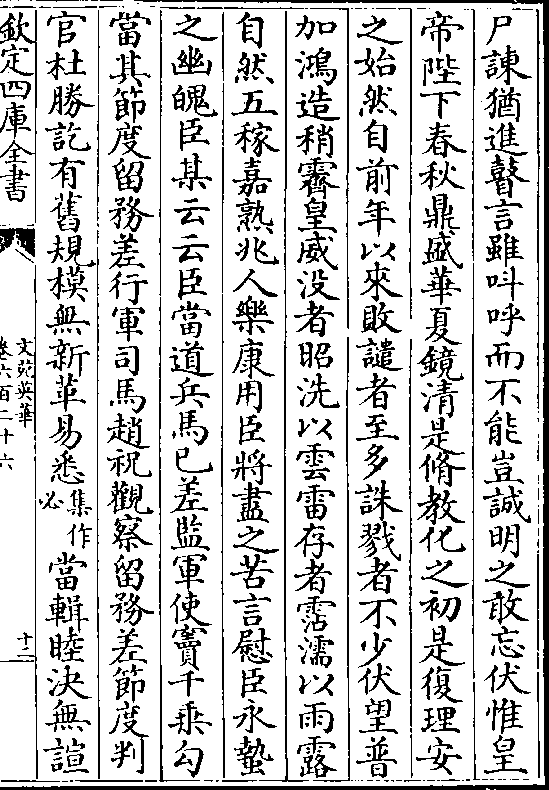 尸諫猶進瞽言雖叫呼而不能豈誠明之敢忘伏惟皇
帝陛下春秋鼎盛華夏鏡清是脩教化之初是復理安
之始然自前年以來敗譴者至多誅戮者不少伏望普
加鴻造稍霽皇威没者昭洗以雲雷存者霑濡以雨露
自然五稼嘉熟兆人樂康用臣將盡之苦言慰臣永蟄
之幽魄臣某云云臣當道兵馬已差監軍使竇千乗勾
當其節度留務差行軍司馬趙祝觀察留務差節度判
官杜勝訖有舊規模無新革易悉集作必當輯睦決無諠
欽定四庫全書
文苑英華
卷六百二十六
十二